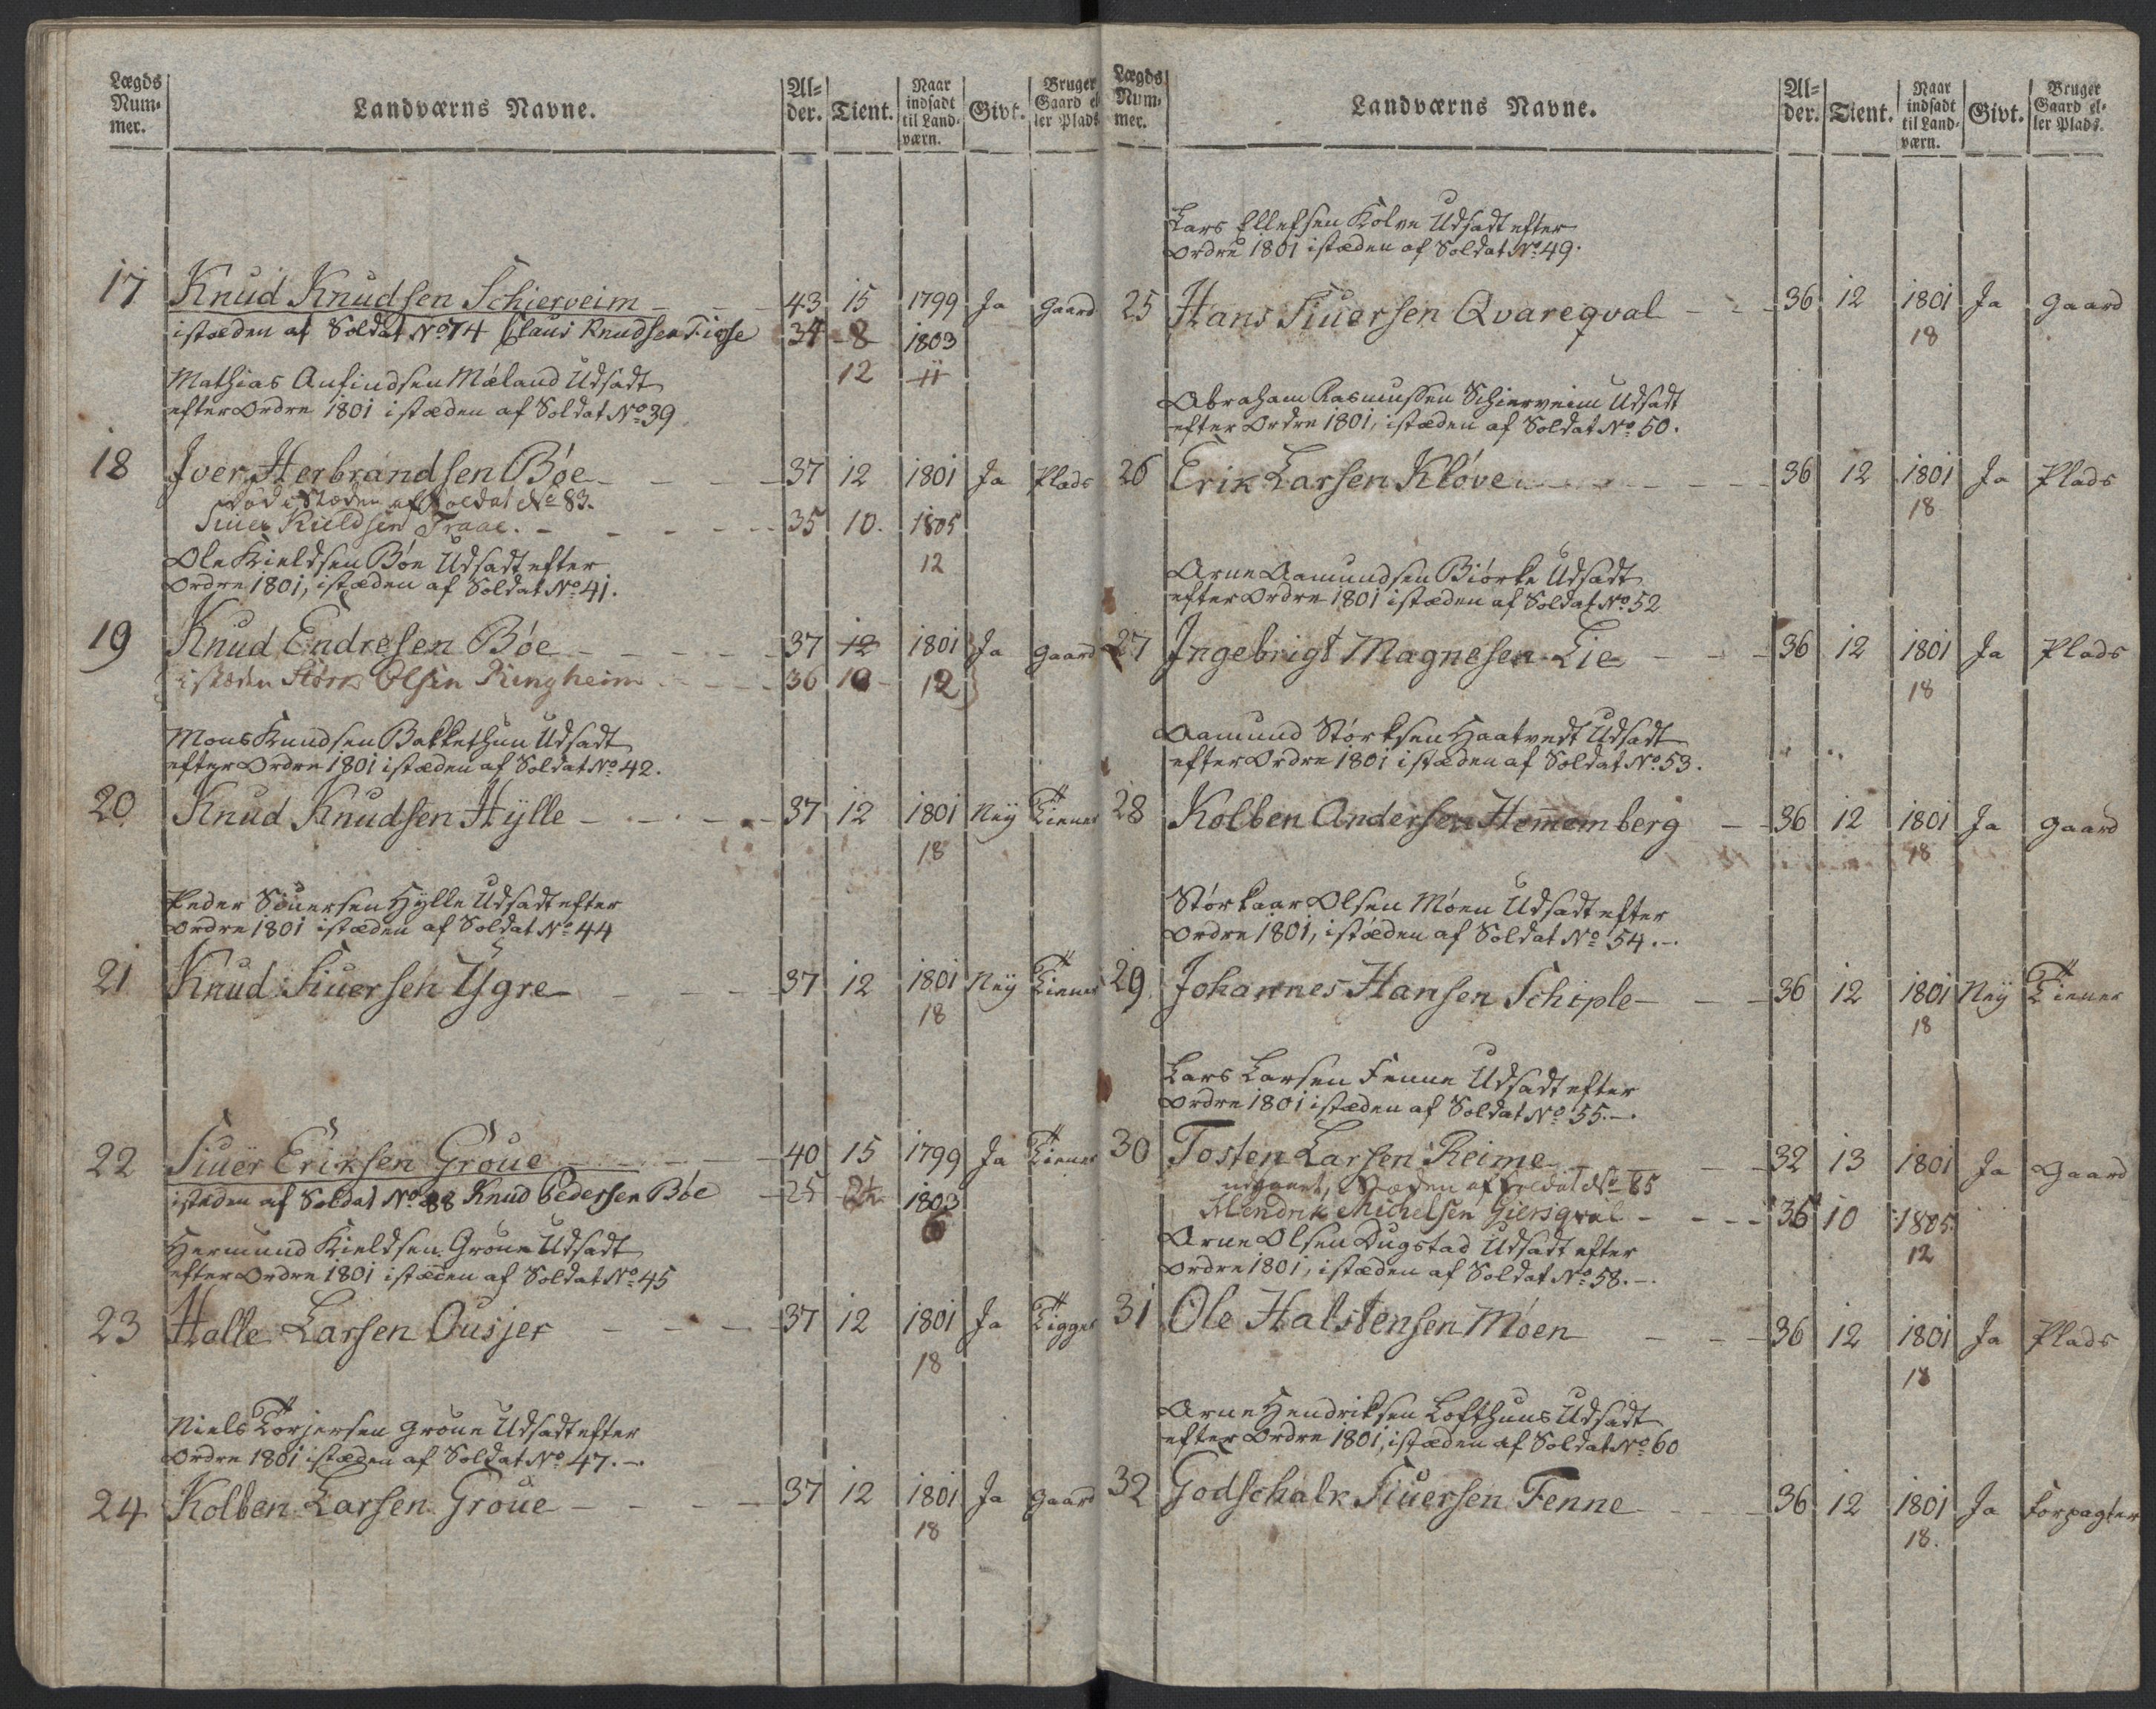 Lægds Num- mer. Landværns Navne. Al- der. Tient. Naar indsadt til Land- værn. Givt. Bruger Gaard el ler Plads
17 Knud Knudsen Schierveim 43 15 1799 Ja gaard
istæden af Soldat No 74 Claus Knudsen 34 8 1803
12 11
Mathias Anfindsen Mæland Udsadt
efter Ordre 1801 istæden af Soldat No 39
18 Iver Herbrandsen Bøe 37 12 1801 Ja Plads
død i Stæden af Soldat No 83.
Siuer Kieldsen Traae. 35 10. 1805
12
Ole Kieldsen Bøe Udsadt efter
Ordre 1801, istæden af Soldat No 41.
19 Knud Endresen Bøe 37 12 1801 Ja gaard
istæden Størk Olsen Ringheim 36 10 12
Mons Knudsen Bakkethun Udsadt
efter Ordre 1801 istæden af Soldat No 42.
20 Knud Knudsen Hylle 37 12 1801 Nej Tiener
18
Peder Siuersen Hylle Udsadt efter
Ordre 1801 istæden af Soldat No 44
21 Knud Siuersen Ygre 37 12 1801 Nej Tiener
18
22 Siuer Eriksen Groue 40 15 1799 Ja Tiener
istæden af Soldat No 88 Knud Pedersen Bøe 25 2½ 1803
6
Hermund Kieldsen Groue Udsadt
efter Ordre 1801 istæden af Soldat No 45
23 Halle Larsen Ousjer 37 12 1801 Ja Tigger
18
Niels Torjersen Groue Udsadt efter
Ordre 1801 istæden af Soldat No 47.
24 Kolben Larsen Groue 37 12 1801 Ja gaard
18
Lægds Num- mer. Landværns Navne. Al- der. Tient. Naar indsadt til Land- værn. Givt. Bruger Gaard el- ler Plads.
Lars Ellefsen Kolve Udsadt efter
Ordre 1801 istæden af Soldat No 49.
25 Hans Siuersen Qvareqval 36 12 1801 Ja gaard
18
Abraham Rasmussen Schierveim Udsadt
efter Ordre 1801, istæden af Soldat No 50.
26 Erik Larsen Kløve 36 12 1801 Ja Plads
18
Arne Aamundsen Biørke Udsadt
efter Ordre 1801 istæden af Soldat No 52
27 Ingebrigt Magnesen Lie 36 12 1801 Ja Plads
18
Aamund Størksen Haatvedt Udsadt
efter Ordre 1801 istæden af Soldat No 53.
28 Kolben Andersen Hemmemberg 36 12 1801 Ja gaard
18
Størkaar Olsen Møen Udsadt efter
Ordre 1801, istæden af Soldat No 54.
29 Johannes Hansen Schiple 36 12 1801 Nej Tiener
18
Lars Larsen Fenne Udsadt efter
Ordre 1801 istæden af Soldat No 55.
30 Tosten Larsen Reime 32 13 1801 Ja Gaard
i Stæden af Soldat No 85
Hendrik Michelsen Giersqval 36 10 1805
12
Arne Olsen Dugstad Udsadt efter
Ordre 1801, istæden af Soldat No 58.
31 Ole Halstensen Møen 36 12 1801 Ja Plads
18
Arne Hendriksen Lofthuus Udsadt
efter Ordre 1801, istæden af Soldat No 60
32 Godschalk Siuersen Fenne 36 12 1801 Ja Forpagter
18.